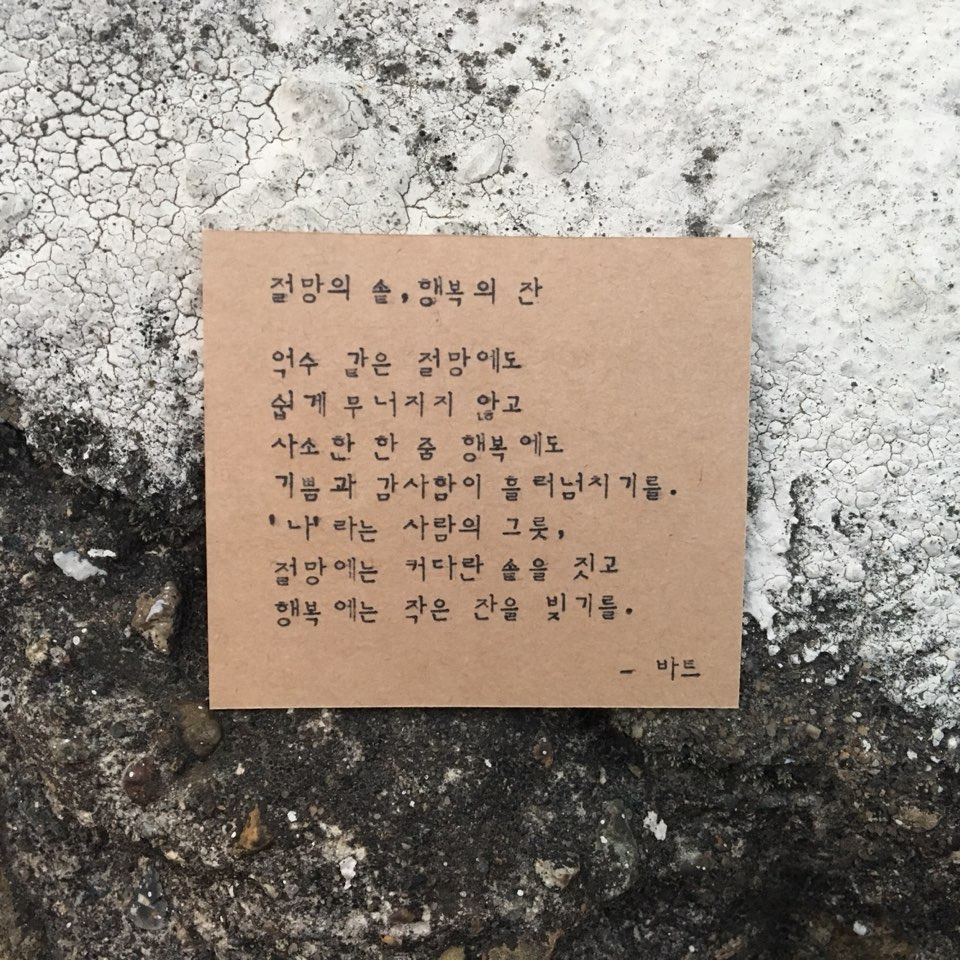 절망의 솥,행복의 잔
억수 같은 절망에도
쉽게 무너지지 않고
사소한 한 줌 행복에도
기쁨과 감사함이 흘러넘치기를.
'나'라는 사람의 그릇,
절망에는 커다란 솥을 짓고
행복에는 작은 잔을 빚기를.
- 바트